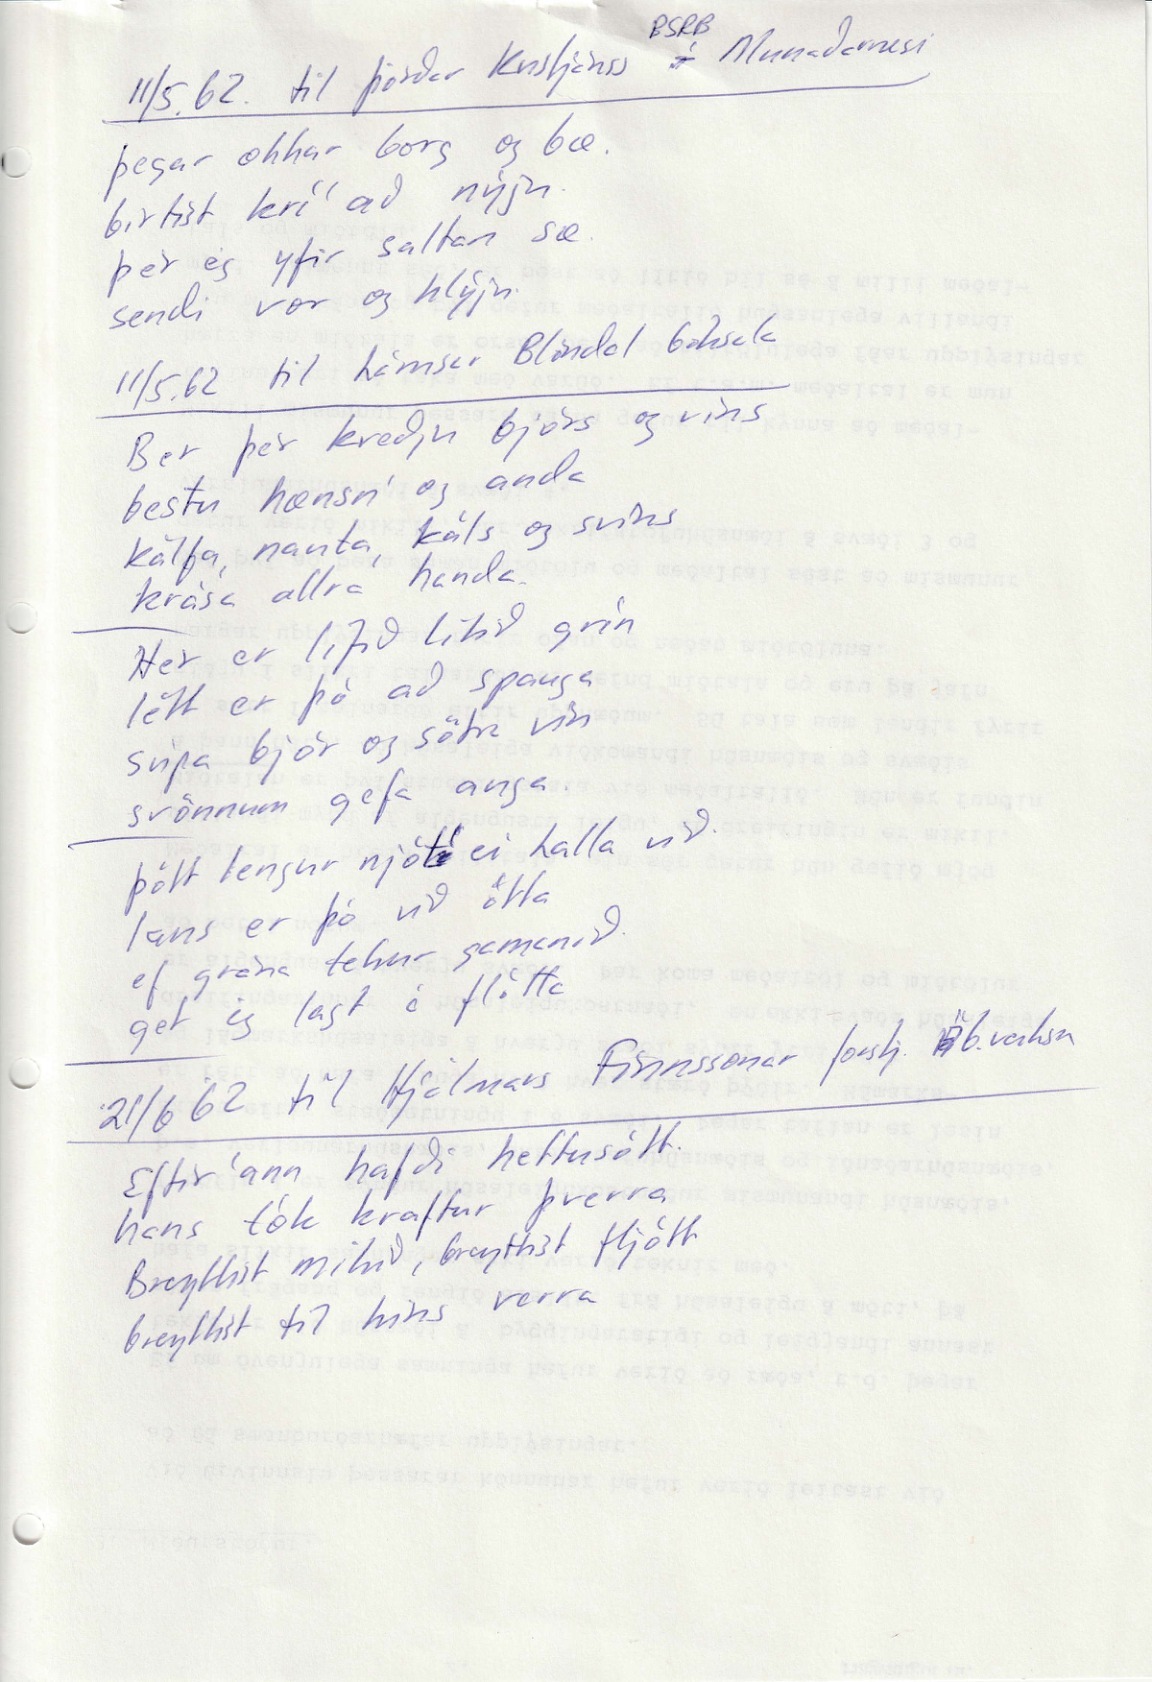 BSRB
11/5.62. til Þórðar Kristjánss í Munaðarnesi
Þegar okkar borg og bæ.
birtist krí að nýju.
þér ég yfir saltan sæ.
sendi vor og hlýju.
11/5.62 til Lárusar Blöndal bóksala
Ber þér kveðju bjórs og víns
bestu hænsn' og anda
kálfa, nauta, káls og svíns
krása allra handa.
Hér er lífið lítið grín
létt er þó að spauga
súpa bjór og sötra vín
svönnum gefa auga.
þótt lengur njóti' ei halla við.
laus er þó við ótta
ef grána tekur gamanið.
get ég lagt á flótta
21/6 62 til Hjálmars Finnssonar forstj. Áb.verksm
Eftir 'ann hafði hettusótt.
hans tók kraftur þverra
Breyttist mikið, breyttist fljótt
breyttist til hins verra